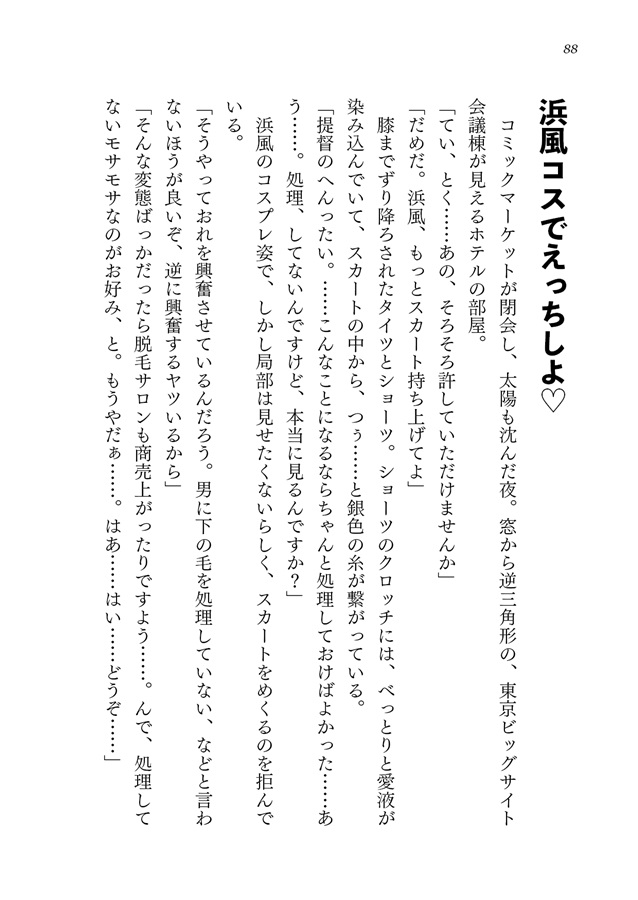 88
浜風コスでえっちしよ♡
　コミックマーケットが閉会し、太陽も沈んだ夜。窓から逆三角形の、東京ビッグサイト
会議棟が見えるホテルの部屋。
「てい、とく……あの、そろそろ許していただけませんか」
「だめだ。浜風、もっとスカート持ち上げてよ」
　膝までずり降ろされたタイツとショーツ。ショーツのクロッチには、べっとりと愛液が
染み込んでいて、スカートの中から、つぅ……と銀色の糸が繋がっている。
「提督のへんったい。……こんなことになるならちゃんと処理しておけばよかった……あ
う……。処理、してないんですけど、本当に見るんですか？」
　浜風のコスプレ姿で、しかし局部は見せたくないらしく、スカートをめくるのを拒んで
いる。
「そうやっておれを興奮させているんだろう。男に下の毛を処理していない、などと言わ
ないほうが良いぞ、逆に興奮するヤツいるから」
「そんな変態ばっかだったら脱毛サロンも商売上がったりですよう……。んで、処理して
ないモサモサなのがお好み、と。もうやだぁ……。はあ……はい……どうぞ……」